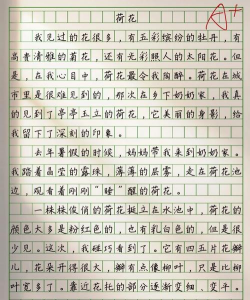 A+
荷花
我见过的花很多，有五彩缤纷的牡丹，有
高贵清雅的菊花，还有光彩照人的太阳花。但
是，在我心目中，荷花最令我陶醉。荷花在城
市里是很难见到的，那次在乡下奶奶家，我真
的见到了亭亭玉立的荷花，它美丽的身影，给
我留下了深刻的印象。
去年暑假的时候，妈妈带我来到奶奶家。
我踏着晶莹的露珠，薄薄的晨雾，走在荷花池
边，观看着刚刚“睡”醒的荷花。
一株株俊俏的荷花挺立在水池中，荷花的
颜色大多是粉红色的，也有乳白色的，但是很
少见。这次，我碰巧看到了。它有四五片花瓣
儿，花朵开得很大，瓣有点像柳叶，只是比柳
叶宽多了。靠近花托的部分逐渐变细，变斗。